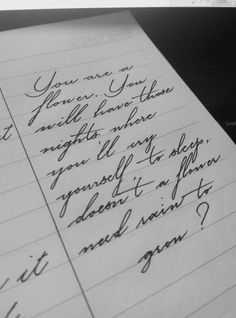 You are a
flower. You
will have those
nights where
you'll cry
yourself to sleep,
doesn't a flower
need rain to
grow?
t
it